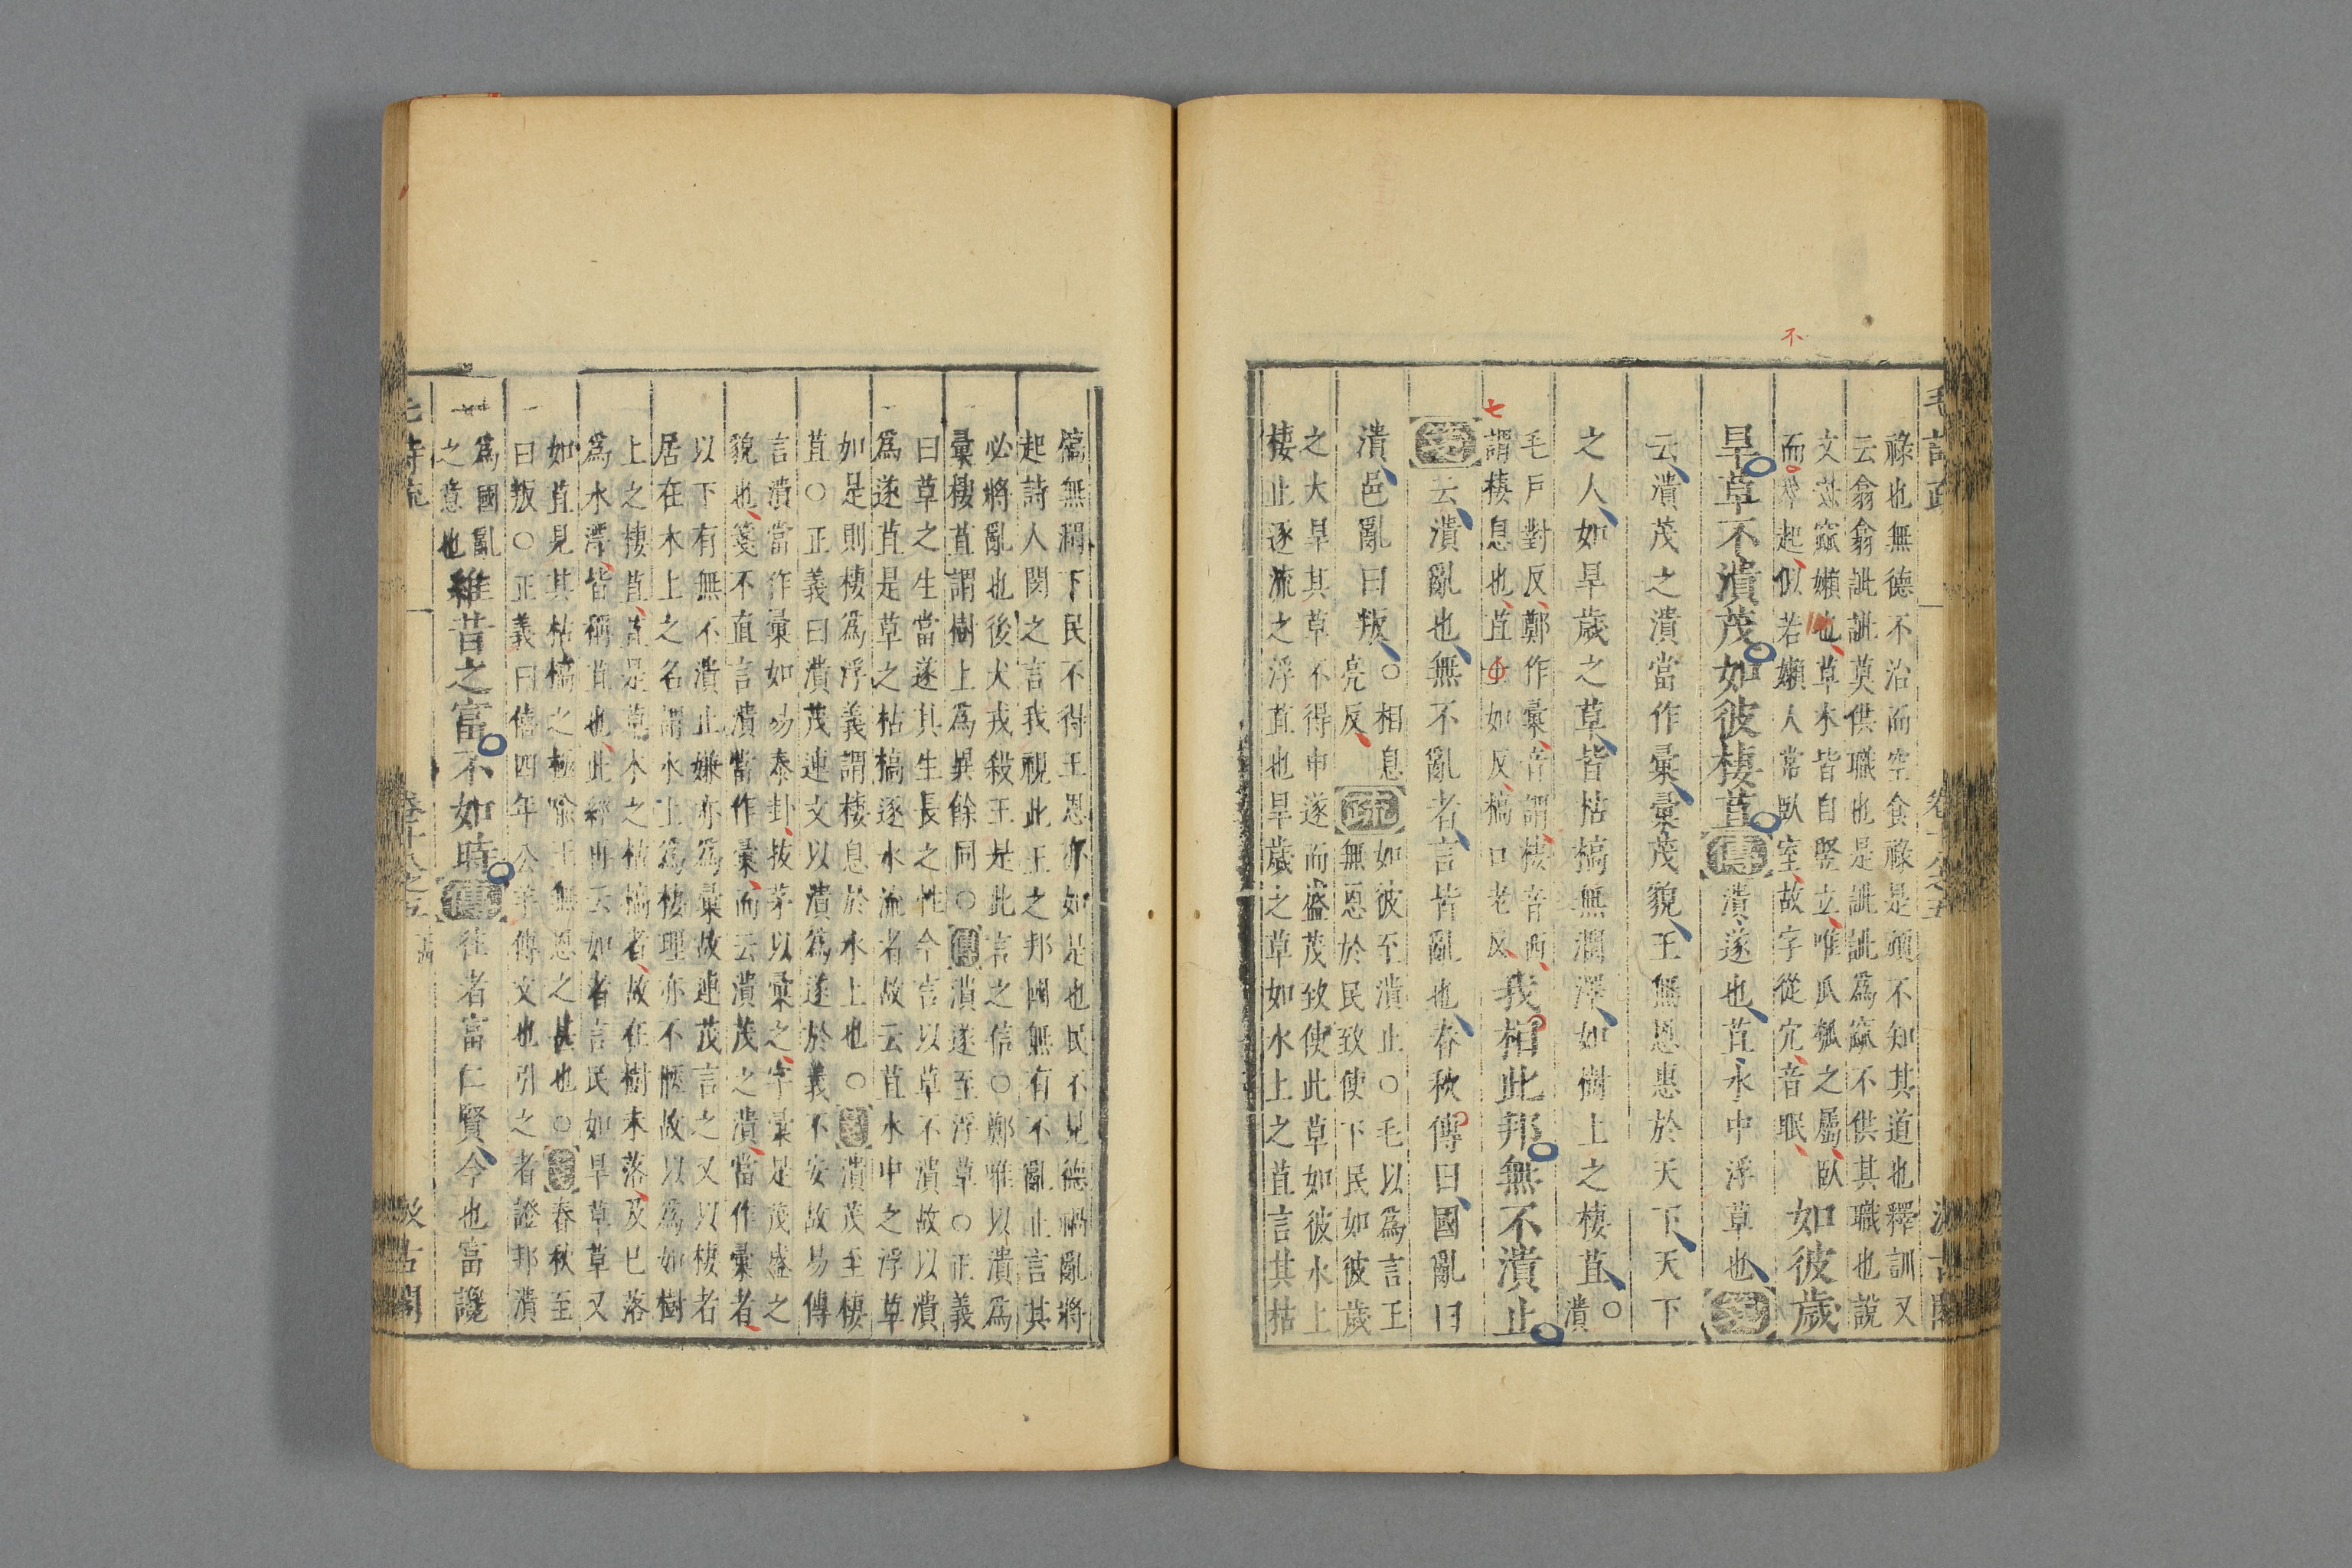 毛詩疏 卷十八之五 汲古閣
祿也無德不治而空食祿是頑不知其道也釋訓又
云翕翕訿訿莫供職也是訿訿爲窳不供其職也說
文云窳嬾也草木皆自豎立唯瓜瓠之屬臥
而不起似若嬾人常臥室故字從宀音眠
如彼歲
旱草不潰茂如彼棲苴傳潰遂也苴水中浮草也箋
云潰茂之潰當作彙彙茂貌王無恩惠於天下天下
之人如旱歲之草皆枯槁無潤澤如樹上之棲苴○潰
毛戶對反鄭作彙音謂棲音西
謂棲息也苴 如反槁口老反
我相此邦無不潰止
箋云潰亂也無不亂者言皆亂也春秋傳曰國亂曰
潰邑亂曰叛○相息亮反疏如彼至潰止○毛以爲言王
無恩於民致使下民如彼歲
之大旱其草不得申遂而盛茂致使此草如彼水上
棲止逐流之浮苴也旱歲之草如水上之苴言其枯
槁無潤下民不得王恩亦如是也民不見德禍亂將
起詩人閔之言我視此王之邦國無有不亂止言其
必將亂也後犬戎殺王是此言之信○鄭唯以潰爲
彙棲苴謂樹上爲異餘同○傳潰遂至浮草○正義
曰草之生當遂其生長之性今言以草不潰故以潰
爲遂苴是草之枯槁逐水流者故云苴水中之浮草
如是則棲爲浮義謂棲息於水上也○箋潰茂至棲
苴○正義曰潰茂連文以潰爲遂於義不安故易傳
言潰當作彙如易泰卦拔茅以彙之字彙是茂盛之
貌也箋不直言潰當作彙而云潰茂之潰當作彙者
以下有無不潰止嫌亦爲彙故連茂言之又以棲者
居在木上之名謂水上爲棲理亦不愜故以爲如樹
上之棲苴苴是草木之枯槁者故在樹未落及已落
爲水漂皆稱苴也此經再云如者言民如旱草草又
如苴見其枯槁之極喻王無恩之甚也○箋春秋至
曰叛○正義曰僖四年公羊傳文也引之者證邦潰
爲國亂
之意也
維昔之富不如時傳往者富仁賢今也富讒
毛詩疏 卷十八之五 汲古閣